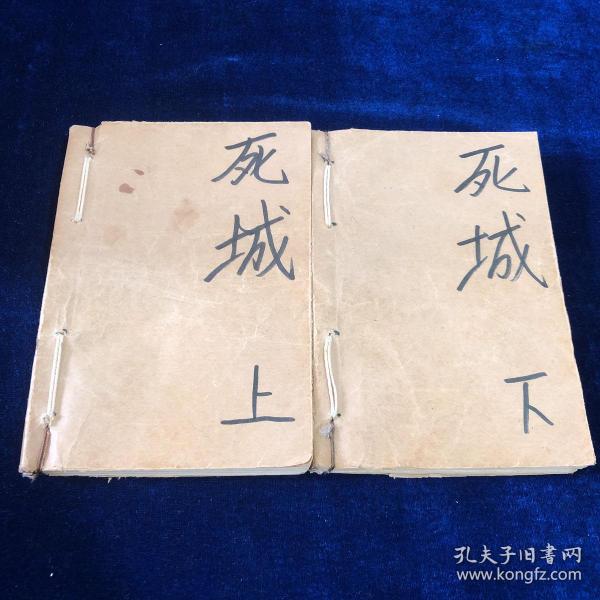 死城
上
死城
下
孔夫子旧書网
www.kongfz.com